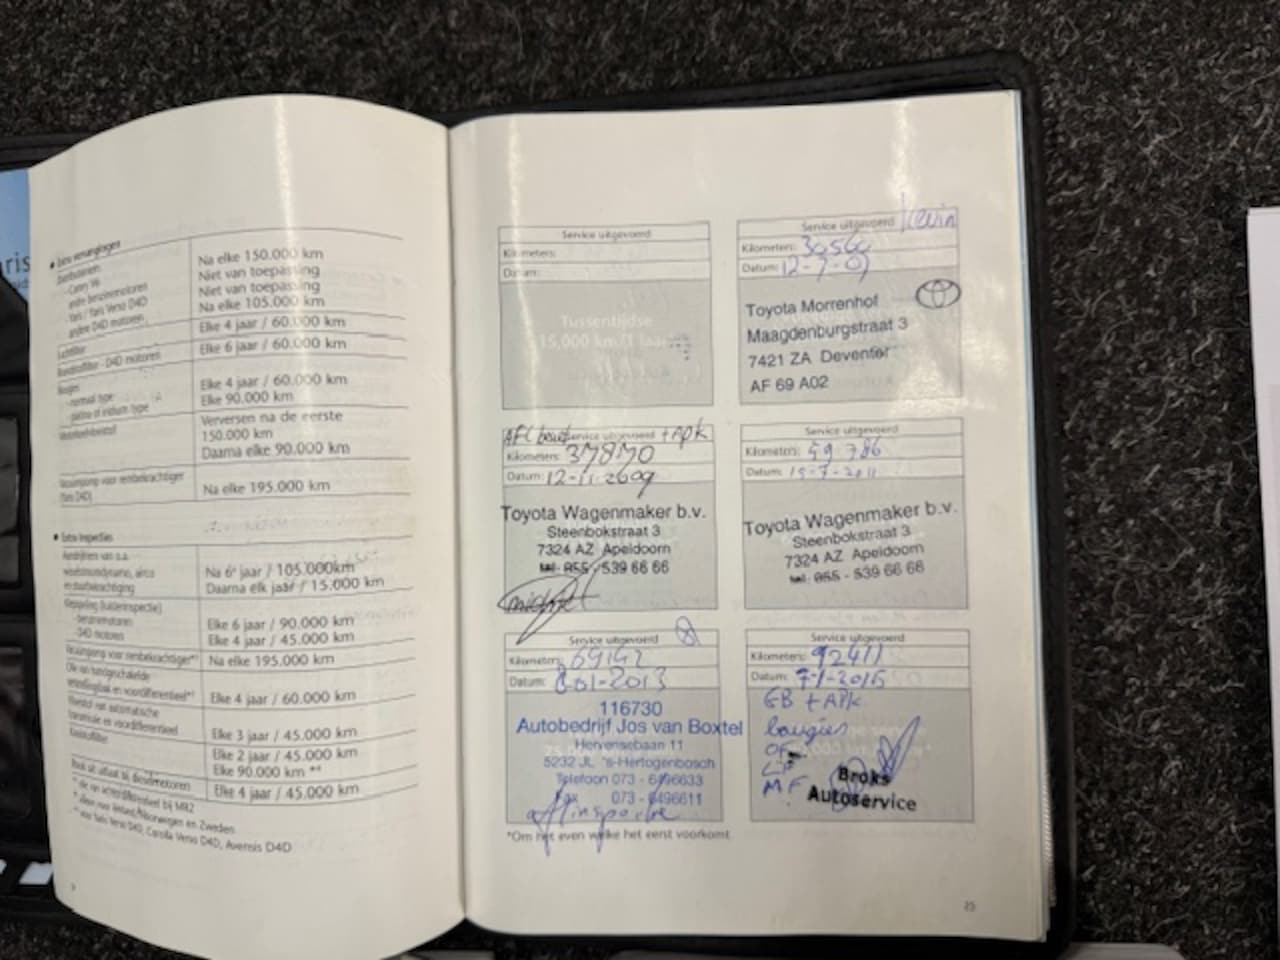 • Extra vervangingen
Distributieriem
- Camry V6
Na elke 150.000 km
- andere benzinemotoren
Niet van toepassing
- Yaris / Yaris Verso D4D
Niet van toepassing
- andere D4D motoren
Na elke 105.000 km
Luchtfilter
Elke 4 jaar / 60.000 km
Brandstoffilter - D4D motoren
Elke 6 jaar / 60.000 km
Bougies
- normaal type
Elke 4 jaar / 60.000 km
- platina of iridium type
Elke 90.000 km
Motorkoelvloeistof
Verversen na de eerste
150.000 km
Daarna elke 90.000 km
Vacuümpomp voor rembekrachtiger
(Yaris D4D)
Na elke 195.000 km
• Extra inspecties
Aandrijfriem van o.a.
wisselstroomdynamo, airco
en stuurbekrachtiging
Na 6e jaar / 105.000km
Daarna elk jaar / 15.000 km
Klepspeling (luisterinspectie)
- benzinemotoren
Elke 6 jaar / 90.000 km
- D4D motoren
Elke 4 jaar / 45.000 km
Vacuümpomp voor rembekrachtiger
Na elke 195.000 km
Olie van handgeschakelde
versnellingsbak en voordifferentieel
Elke 4 jaar / 60.000 km
Vloeistof van automatische
transmissie en voordifferentieel
Elke 3 jaar / 45.000 km
Elke 2 jaar / 45.000 km
Elke 90.000 km **
Roet uit uitlaat bij dieselmotoren
Elke 4 jaar / 45.000 km
Service uitgevoerd
Kilometers:
Datum:
Tussentijdse
15,000 km/1 jaar
Service uitgevoerd Kevin
Kilometers: 30560
Datum: 12-7-07
Toyota Morrenhof
Maagdenburgstraat 3
7421 ZA Deventer
AF 69 A02
Service uitgevoerd + Apk
Kilometers: 37870
Datum: 12-11-2009
Toyota Wagenmaker b.v.
Steenbokstraat 3
7324 AZ Apeldoorn
tel. 055 - 539 66 66
Service uitgevoerd
Kilometers: 59 786
Datum: 15-7-2011
Toyota Wagenmaker b.v.
Steenbokstraat 3
7324 AZ Apeldoorn
tel. 055 - 539 66 66
Service uitgevoerd
Kilometers: 69142
Datum: 8-01-2013
116730
Autobedrijf Jos van Boxtel
Hervensebaan 11
5232 JL 's-Hertogenbosch
Telefoon 073 - 6496633
Fax 073 - 6496611
Service uitgevoerd
Kilometers: 92411
Datum: 7-1-2015
GB + APK
bougies
OF
LF
MF
Broks
Autoservice
*Om het even welke het eerst voorkomt
25